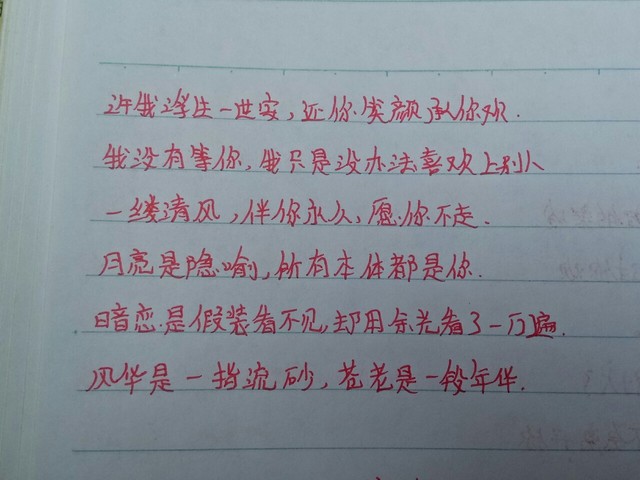 许我浮生一世安，还你笑颜承你欢.
我没有等你，我只是没办法喜欢上别人
一缕清风，伴你永久，愿你不走.
月亮是隐喻，所有本体都是你.
暗恋是假装看不见，却用余光看了一万遍.
风华是一指流砂，苍老是一段年华.